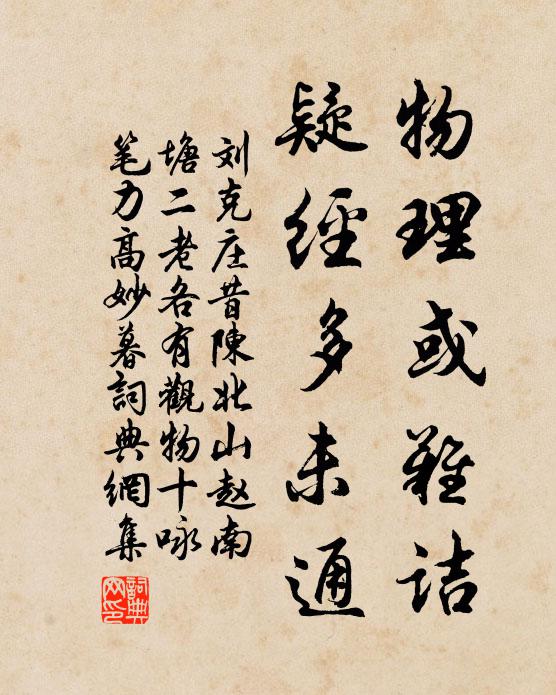 物理或難詰
疑經多未通
刘克庄昔陳北山赵南
塘二老各有觀物十咏
笔力高妙暮詞典網集
詞典网印